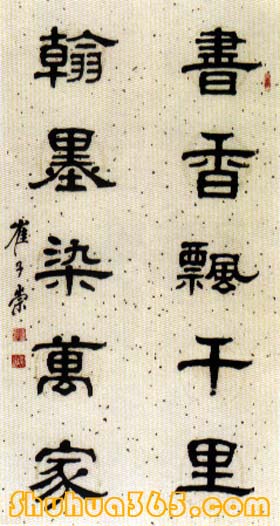 書香飄千里
翰墨染萬家
崔子崇
shuhua365.com